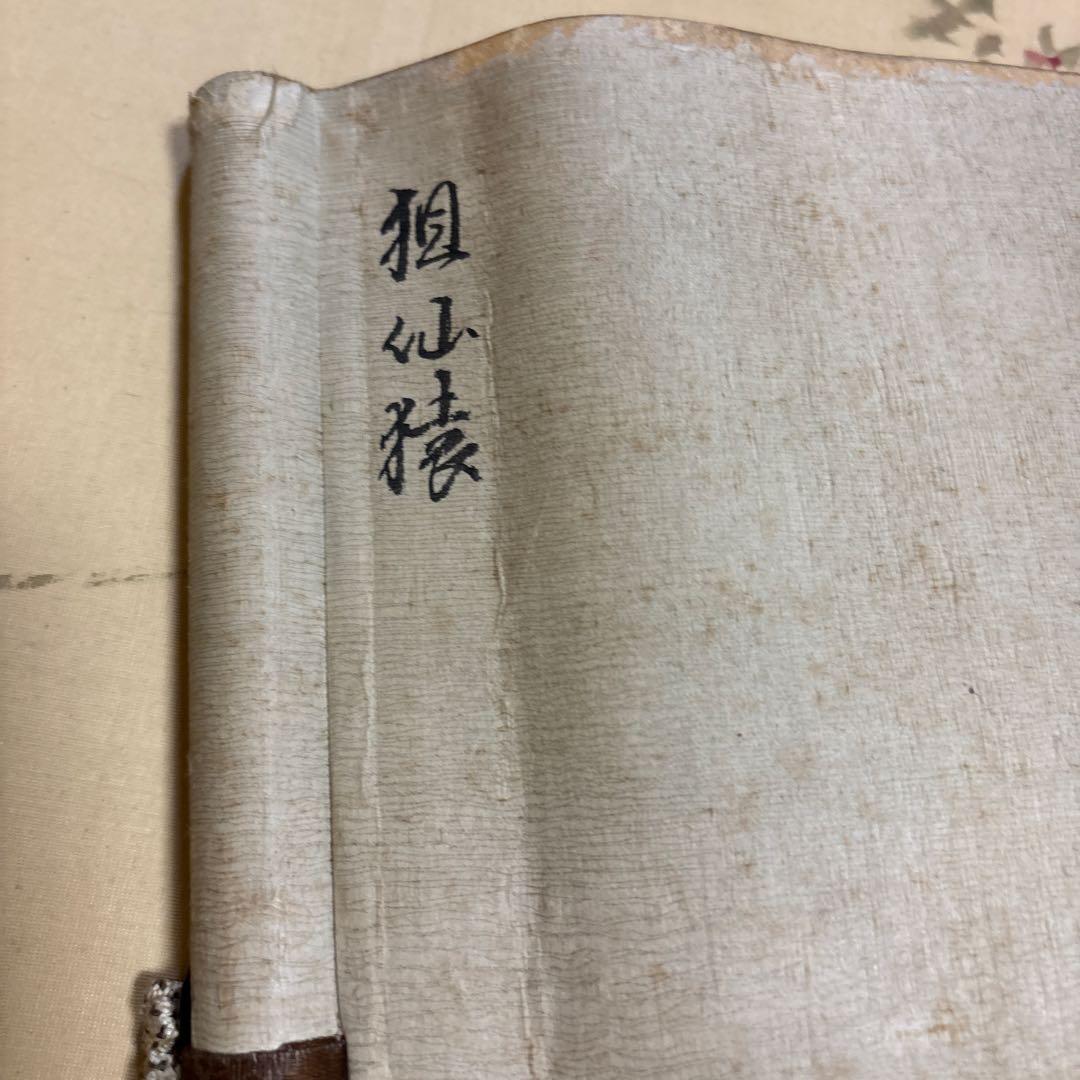 狙仙猿